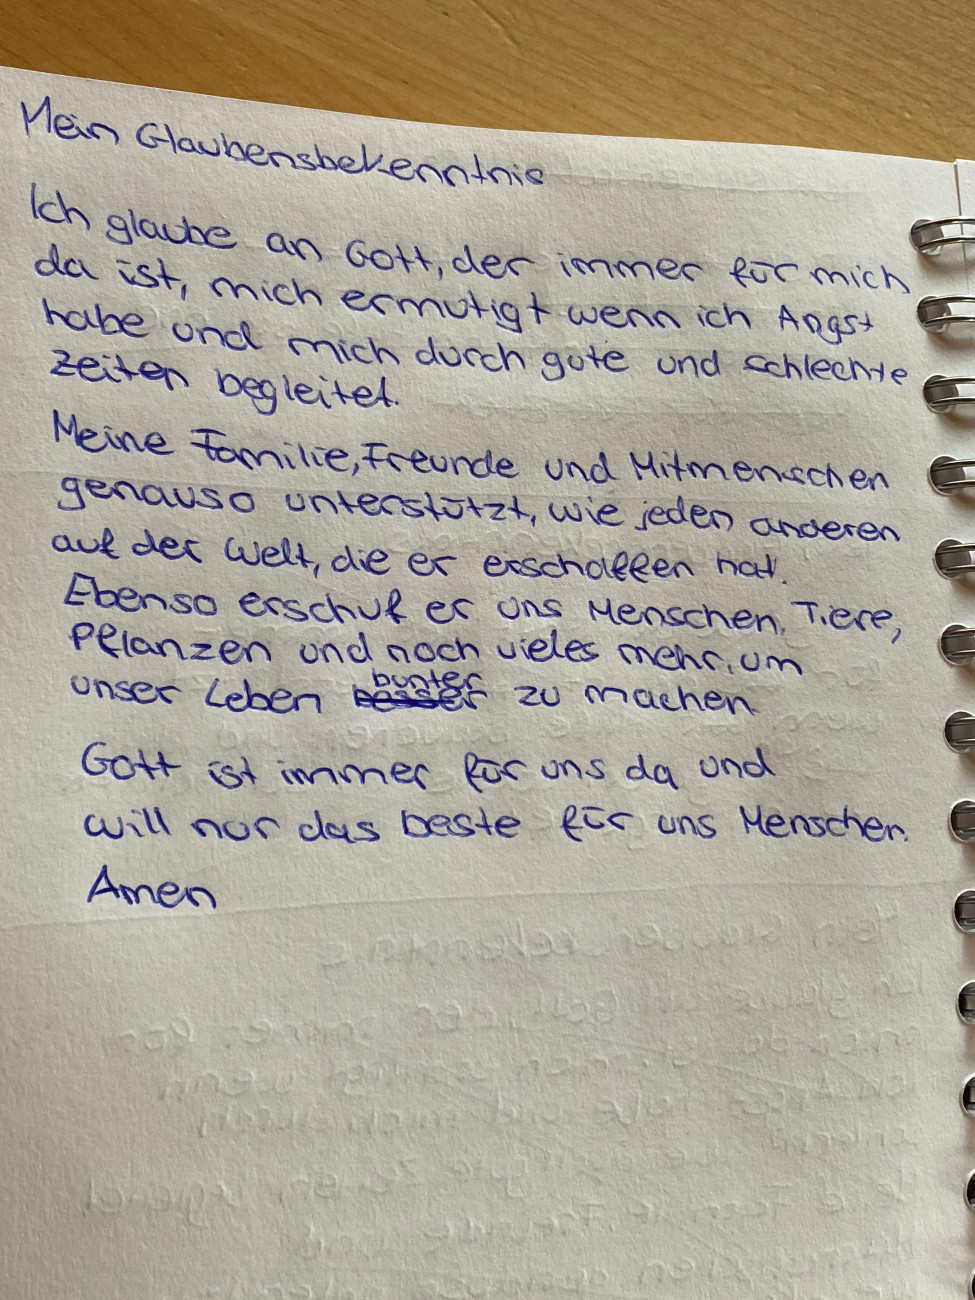 Mein Glaubensbekenntnis
Ich glaube an Gott, der immer für mich
da ist, mich ermutigt wenn ich Angst
habe und mich durch gute und schlechte
Zeiten begleitet.
Meine Familie, Freunde und Mitmenschen
genauso unterstützt, wie jeden anderen
auf der Welt, die er erschaffen hat.
Ebenso erschuf er uns Menschen, Tiere,
Pflanzen und noch vieles mehr, um
bunter
unser Leben besser zu machen.
Gott ist immer für uns da und
will nur das beste für uns Menschen.
Amen